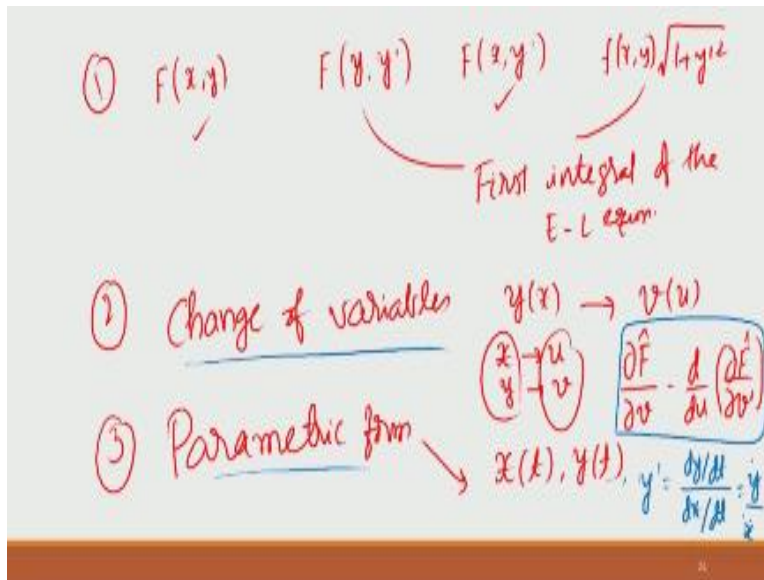 ① F(x,y) F(y,y') F(x,y') f(x,y)√1+y'²
First integral of the
E-L eqn.
② Change of variables y(x) → v(u)
x → u
y → v
∂F̂/∂v - d/du (∂F̂/∂v')
③ Parametric form x(t), y(t), y' = dy/dt / dx/dt = ẏ/ẋ